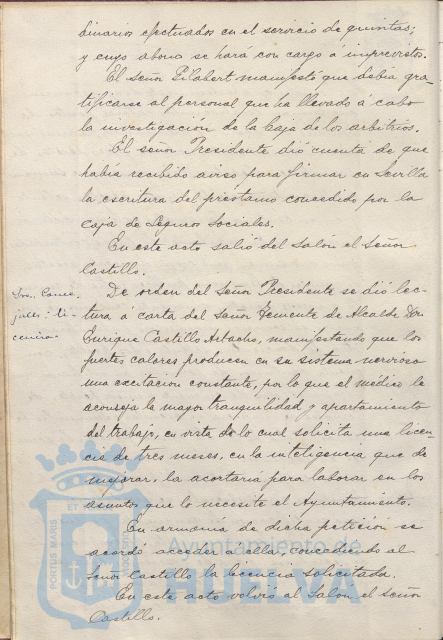 dinarios efectuados en el servicio de quintas;
y cuyo abono se hará con cargo á imprevistos.
El señor Gilabert manifestó que debia gra-
tificarse al personal que ha llevado á cabo
la investigación de la Caja de los arbitrios.
El señor Presidente dió cuenta de que
habia recibido aviso para firmar en Sevilla
la escritura del préstamo concedido por la
Caja de Seguros Sociales.
En este acto salió del Salon el Señor
Castillo.
Sres. Conce-
jales: li-
cencia.
De orden del Señor Presidente se dió lec-
tura á carta del Señor Temente de Alcalde Don
Enrique Castillo, manifestando que los
fuertes calores producen en su sistema nervioso
una excitacion constante, por lo que el médico le
aconseja la mayor tranquilidad y apartamiento
del trabajo, en vista de lo cual solicita una licen-
cia de tres meses, en la inteligencia que de
mejorar, la acortaria para laborar en los
asuntos que lo necesite el Ayuntamiento.
En armonia de dicha peticion se
acordó acceder a ella, concediendo al
señor Castillo la licencia solicitada.
En este acto volvió al Salon el señor
Castillo.
PORTUS MARIS ET
Ayuntamiento de
HUELVA